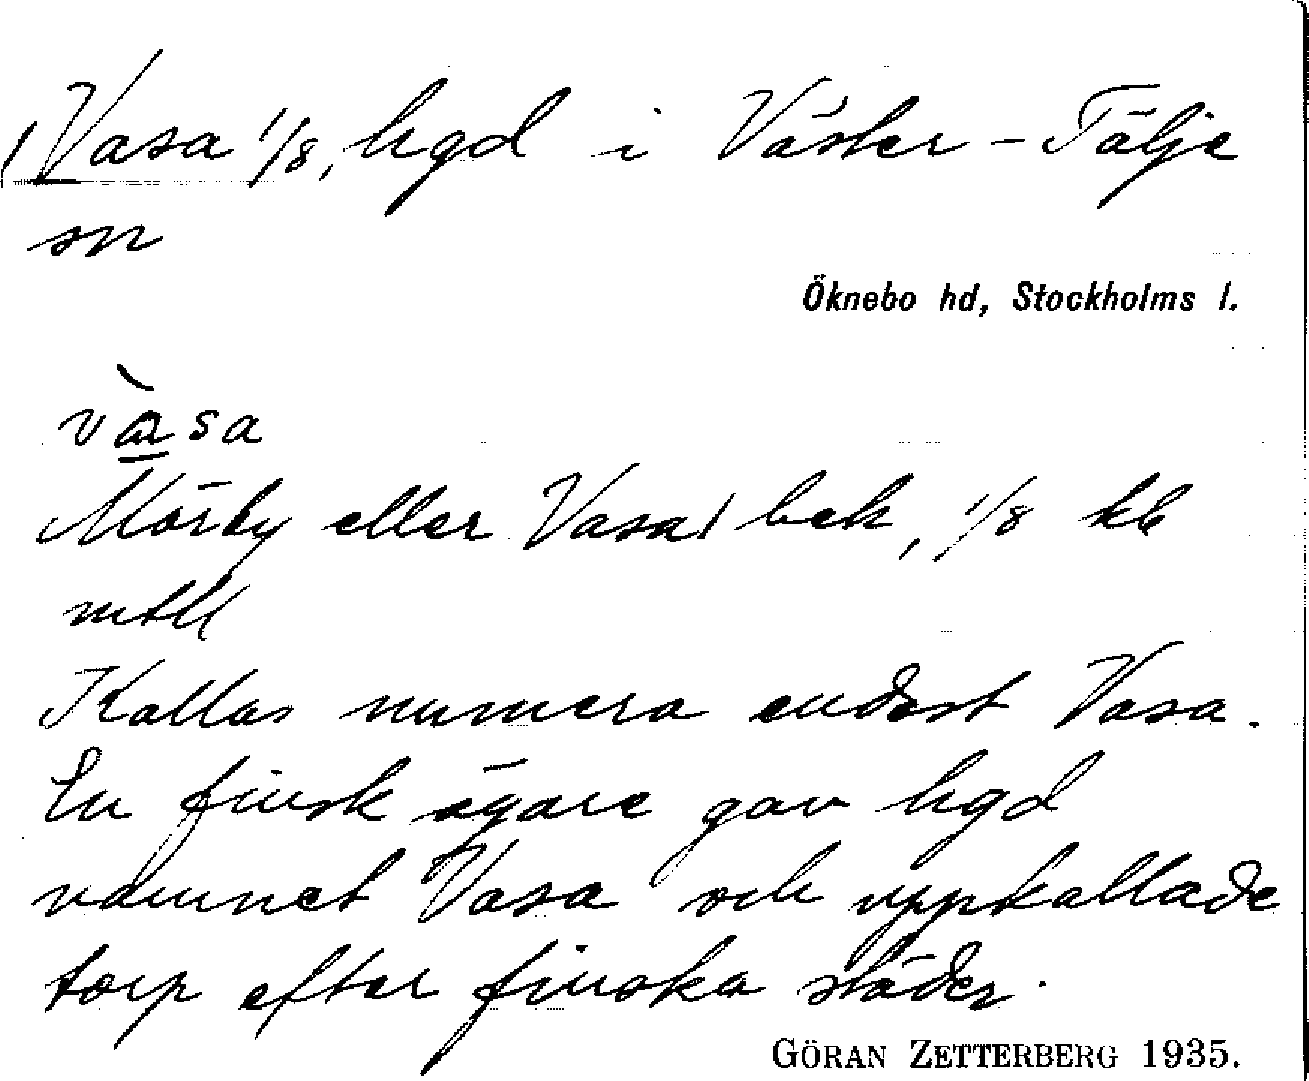 Vasa 1/8, hgd i Väster-Tälje
sn
Öknebo hd, Stockholms l.
vàsa
Mörby eller Vasa/ beh, 1/8 kb
mtll
Kallas numera endast Vasa.
En finsk ägare gav hgd
namnet Vasa och uppkallade
torp efter finska städer.
GÖRAN ZETTERBERG 1935.